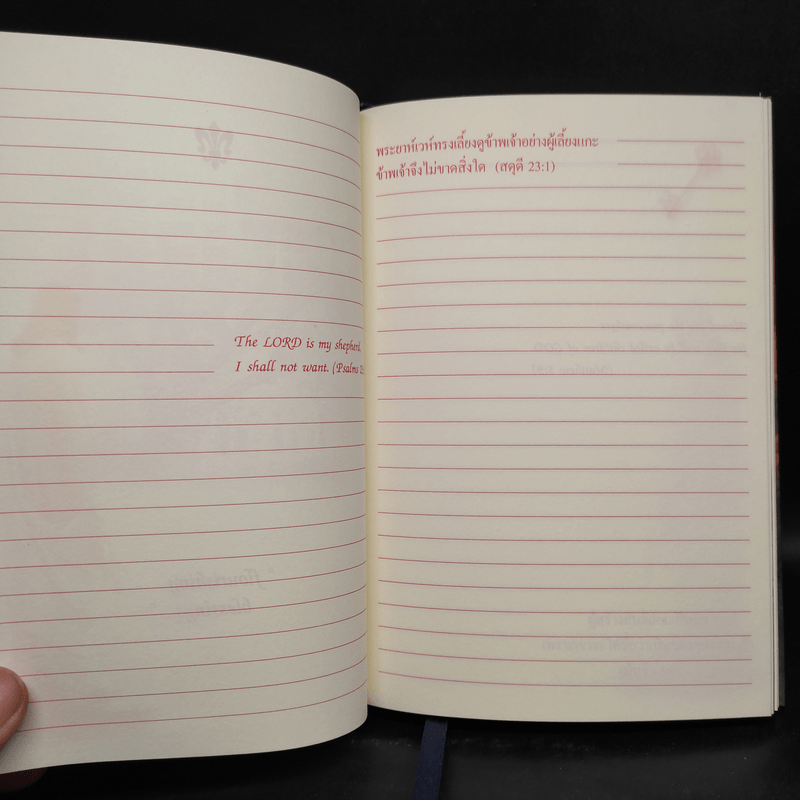 The LORD is my shepherd,
I shall not want. (Psalms 23
พระยาห์เวห์ทรงเลี้ยงดูข้าพเจ้าอย่างผู้เลี้ยงแกะ
ข้าพเจ้าจึงไม่ขาดสิ่งใด (สดุดี 23:1)